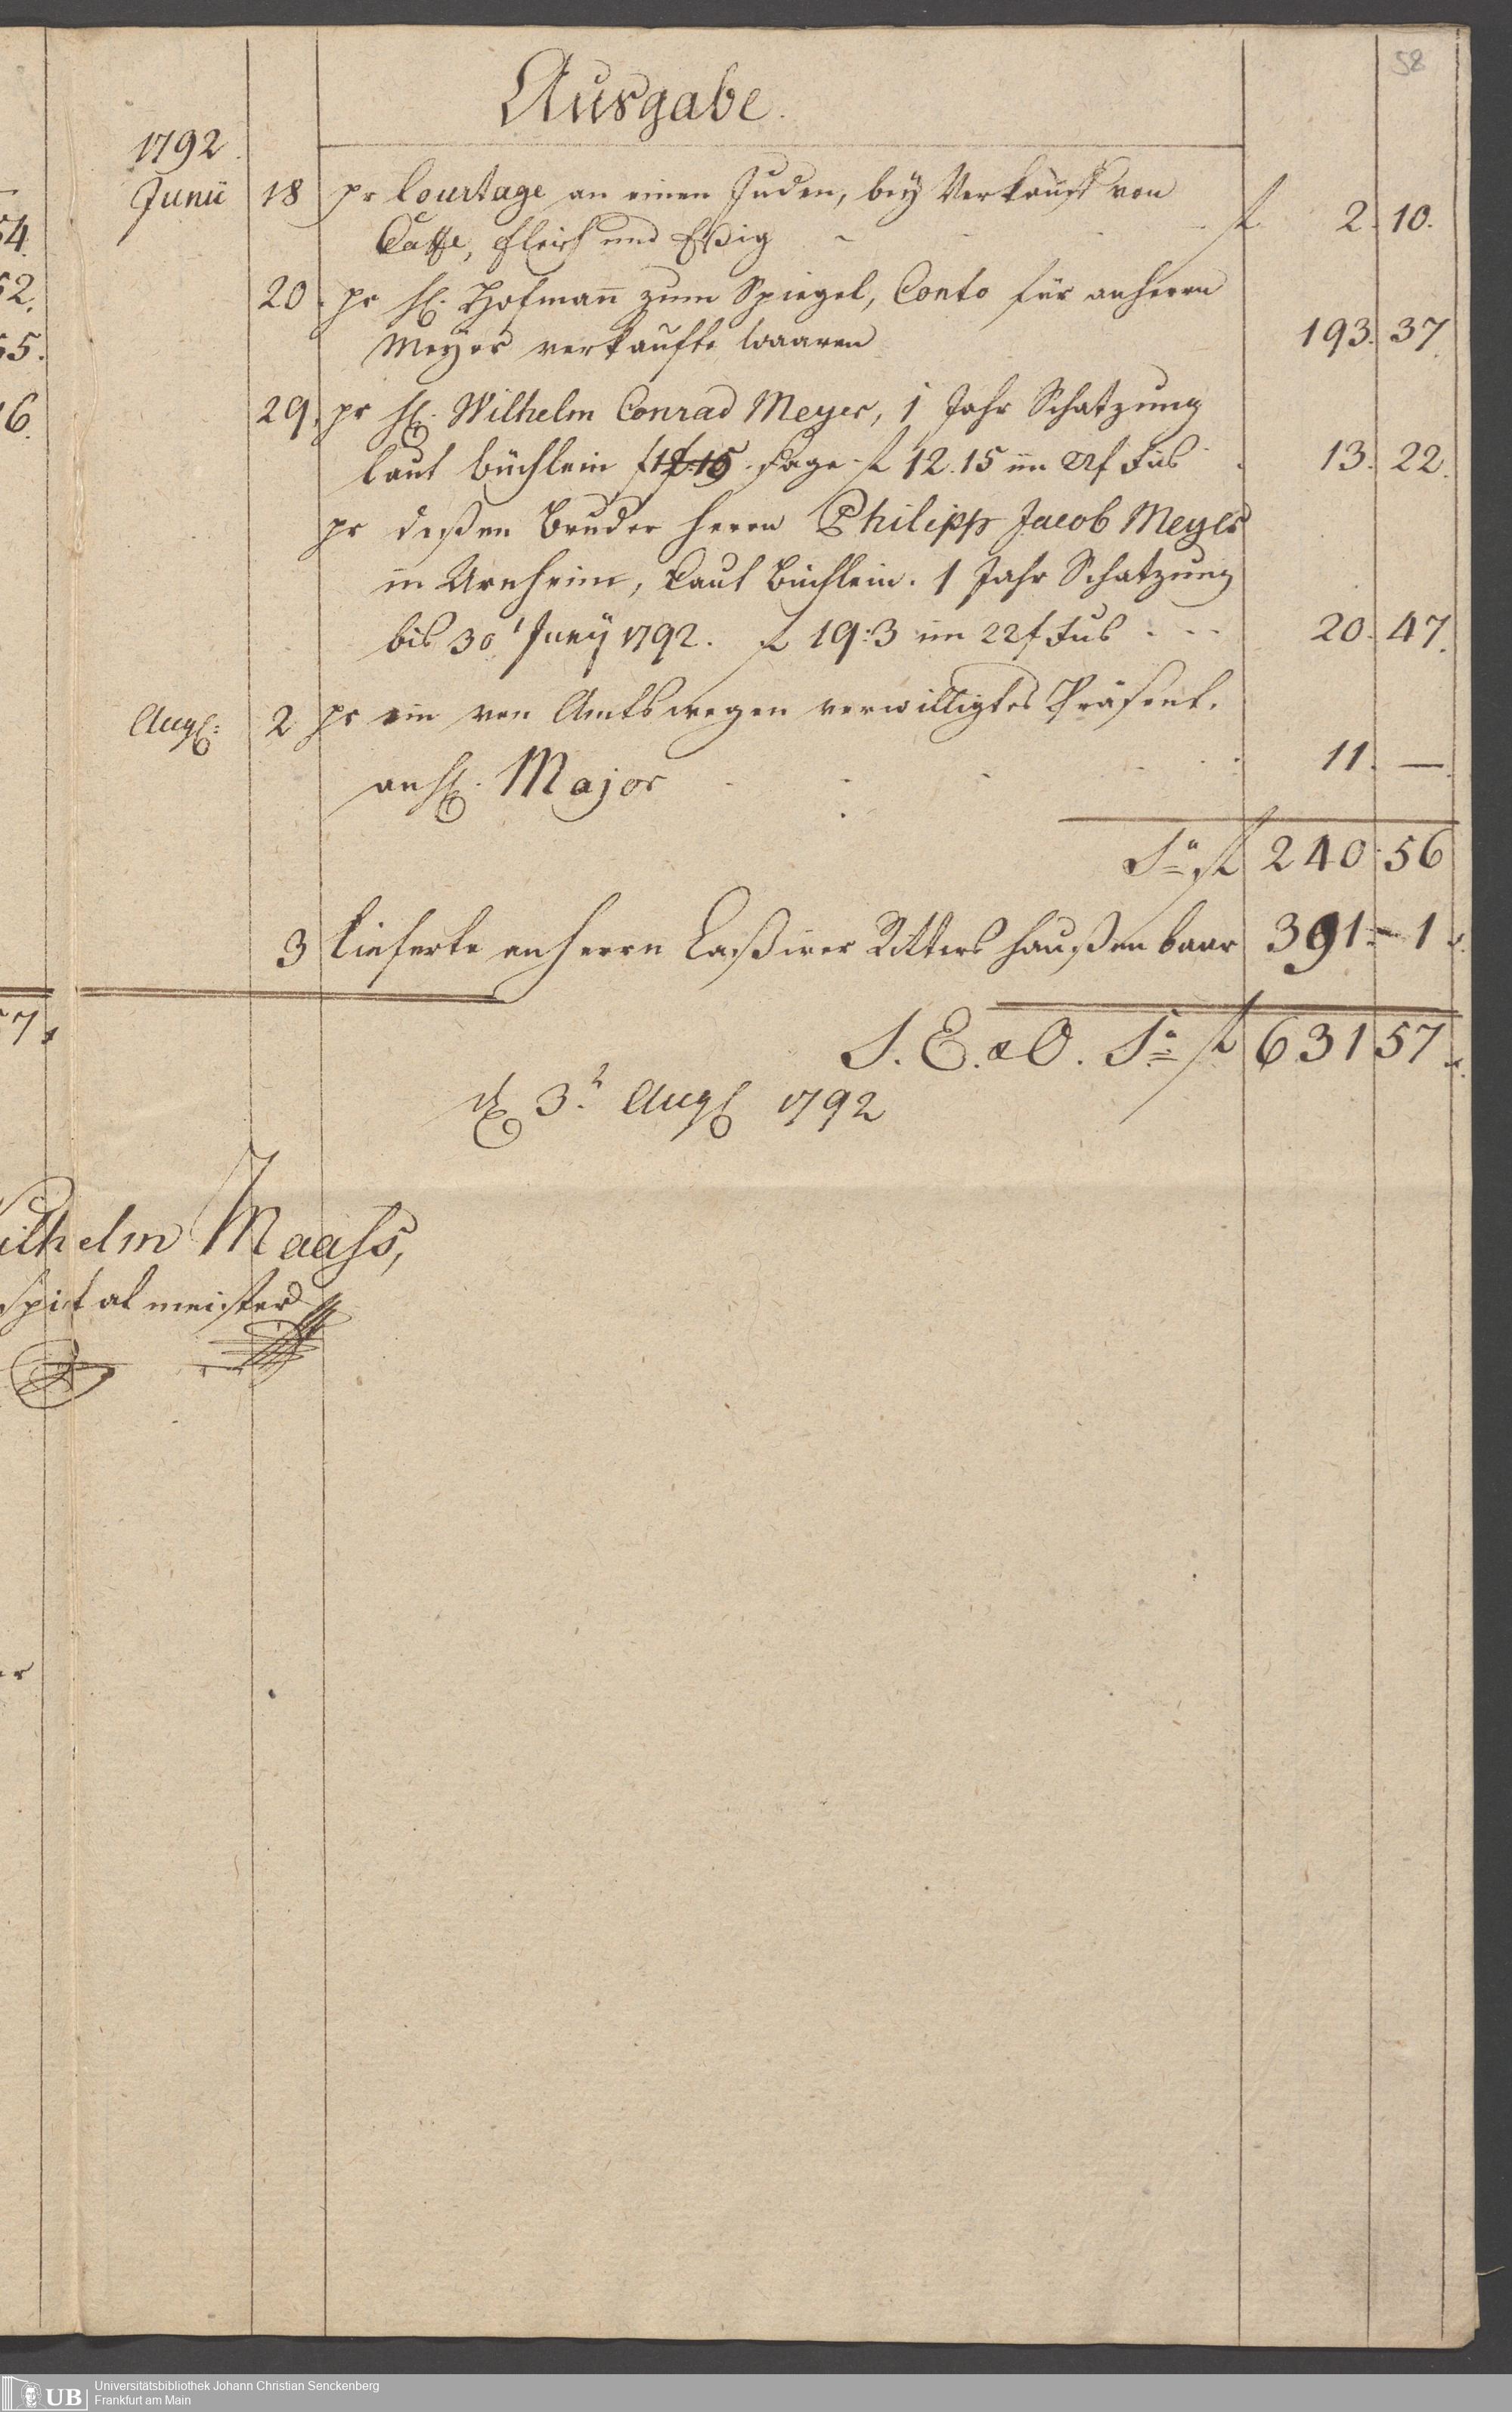 58
Ausgabe.
1792.
Junii 18 pr Courtage an einen Juden, beÿ Verkauff von
Caffe, Fleisch und Eßig f 2. 10.
20. pr H. Hofman̄ zum Spiegel, Conto für an Herrn
Meÿer verkaufte Waaren 193. 37.
29. pr H. Wilhelm Conrad Meyer, 1 Jahr Schatzung
laut büchlein f 12.15 im 22 f Fus 13. 22.
pr deßen Bruder Herrn Philipp Jacob Meyer
in Arnheim, laut Büchlein. 1 Jahr Schatzung
bis 30 Junÿ 1792. f 19:3 im 22 f Fus 20. 47.
Aug: 2 pr ein von Amtswegen verwilligtes Präsent.
an H. Major 11. —.
Sa f 240. 56
3 lieferte an Herrn Caßirer Rittershaußen baar 391 - 1.
S. E. & O. Sa f 631 57.
d. 3t Aug 1792
54.
52.
55.
16.
57.
ilhelm Maass,
spital meister
er
UB Universitätsbibliothek Johann Christian Senckenberg
Frankfurt am Main